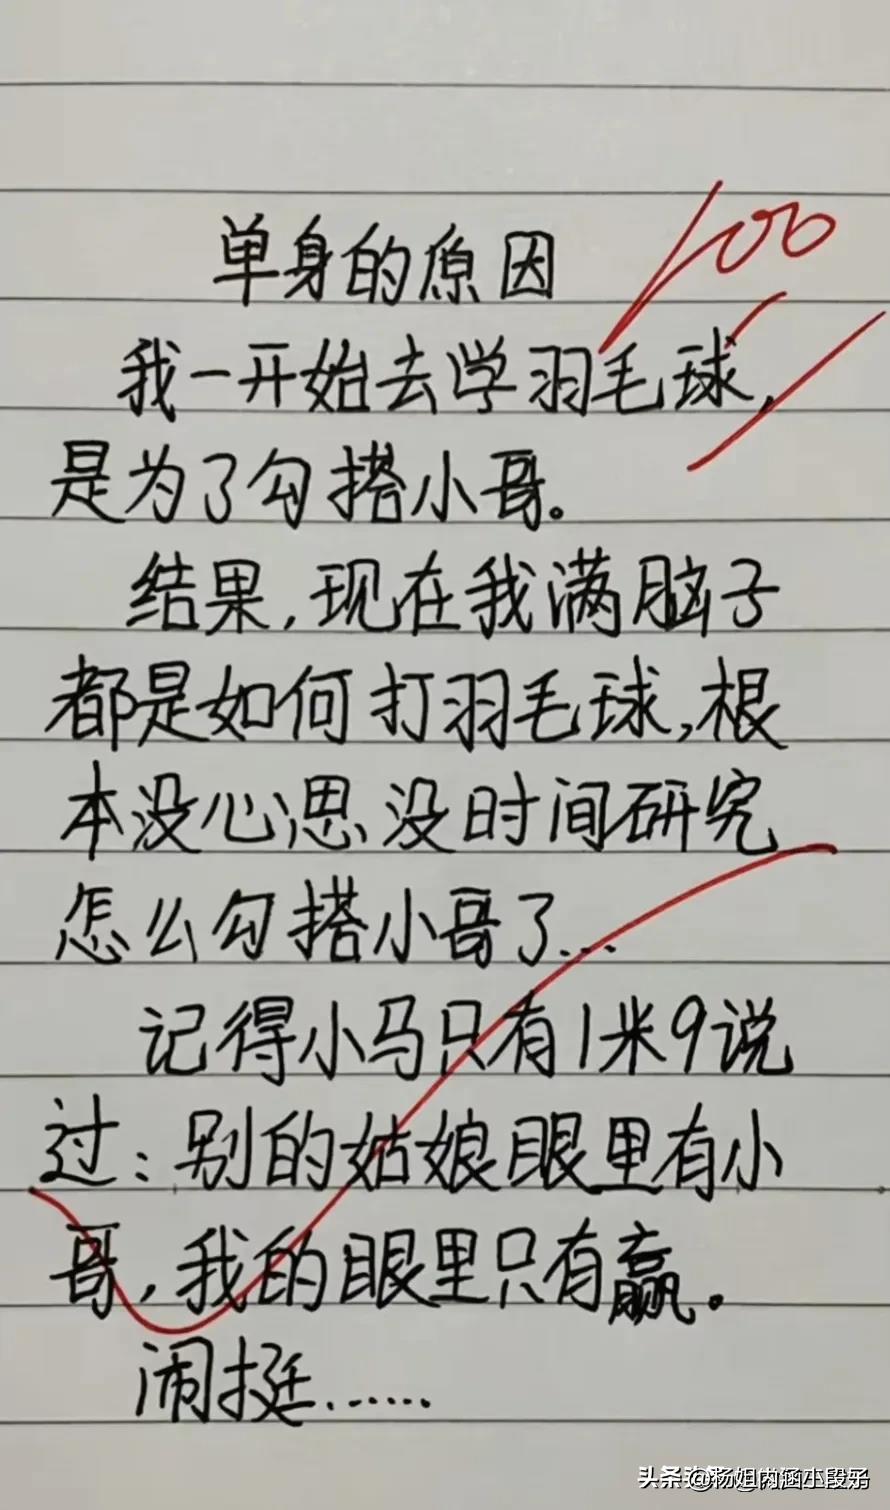 单身的原因
100
我一开始去学羽毛球,
是为了勾搭小哥。
结果,现在我满脑子
都是如何打羽毛球,根
本没心思没时间研究
怎么勾搭小哥了...
记得小马只有1米9说
过:别的姑娘眼里有小
哥,我的眼里只有赢。
闹挺......
头条 @杨姐内涵小段子